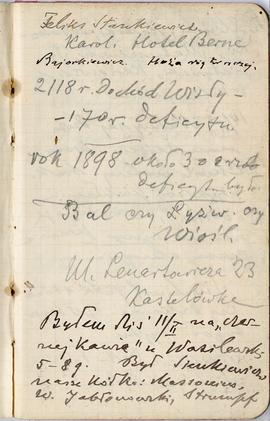 Feliks Stankiewicz
Karol. Hotel Berne
Bajorkiewicz. Hoża róg Kruczej.
2118 r. Dochód Wisły -
- 170 r. deficytu
rok 1898 około 300
deficytu było
Bal czy Łyżw. czy
Wiośl.
Ul. Lenartowicza 23
Kastelówka
Byłem dziś 11/II na „czar-
nej kawie" u Wasilewsk.
5-8 g. Był Sienkiewicz
nasze kółko: Massonius,
W. Jabłonowski, Strumpf